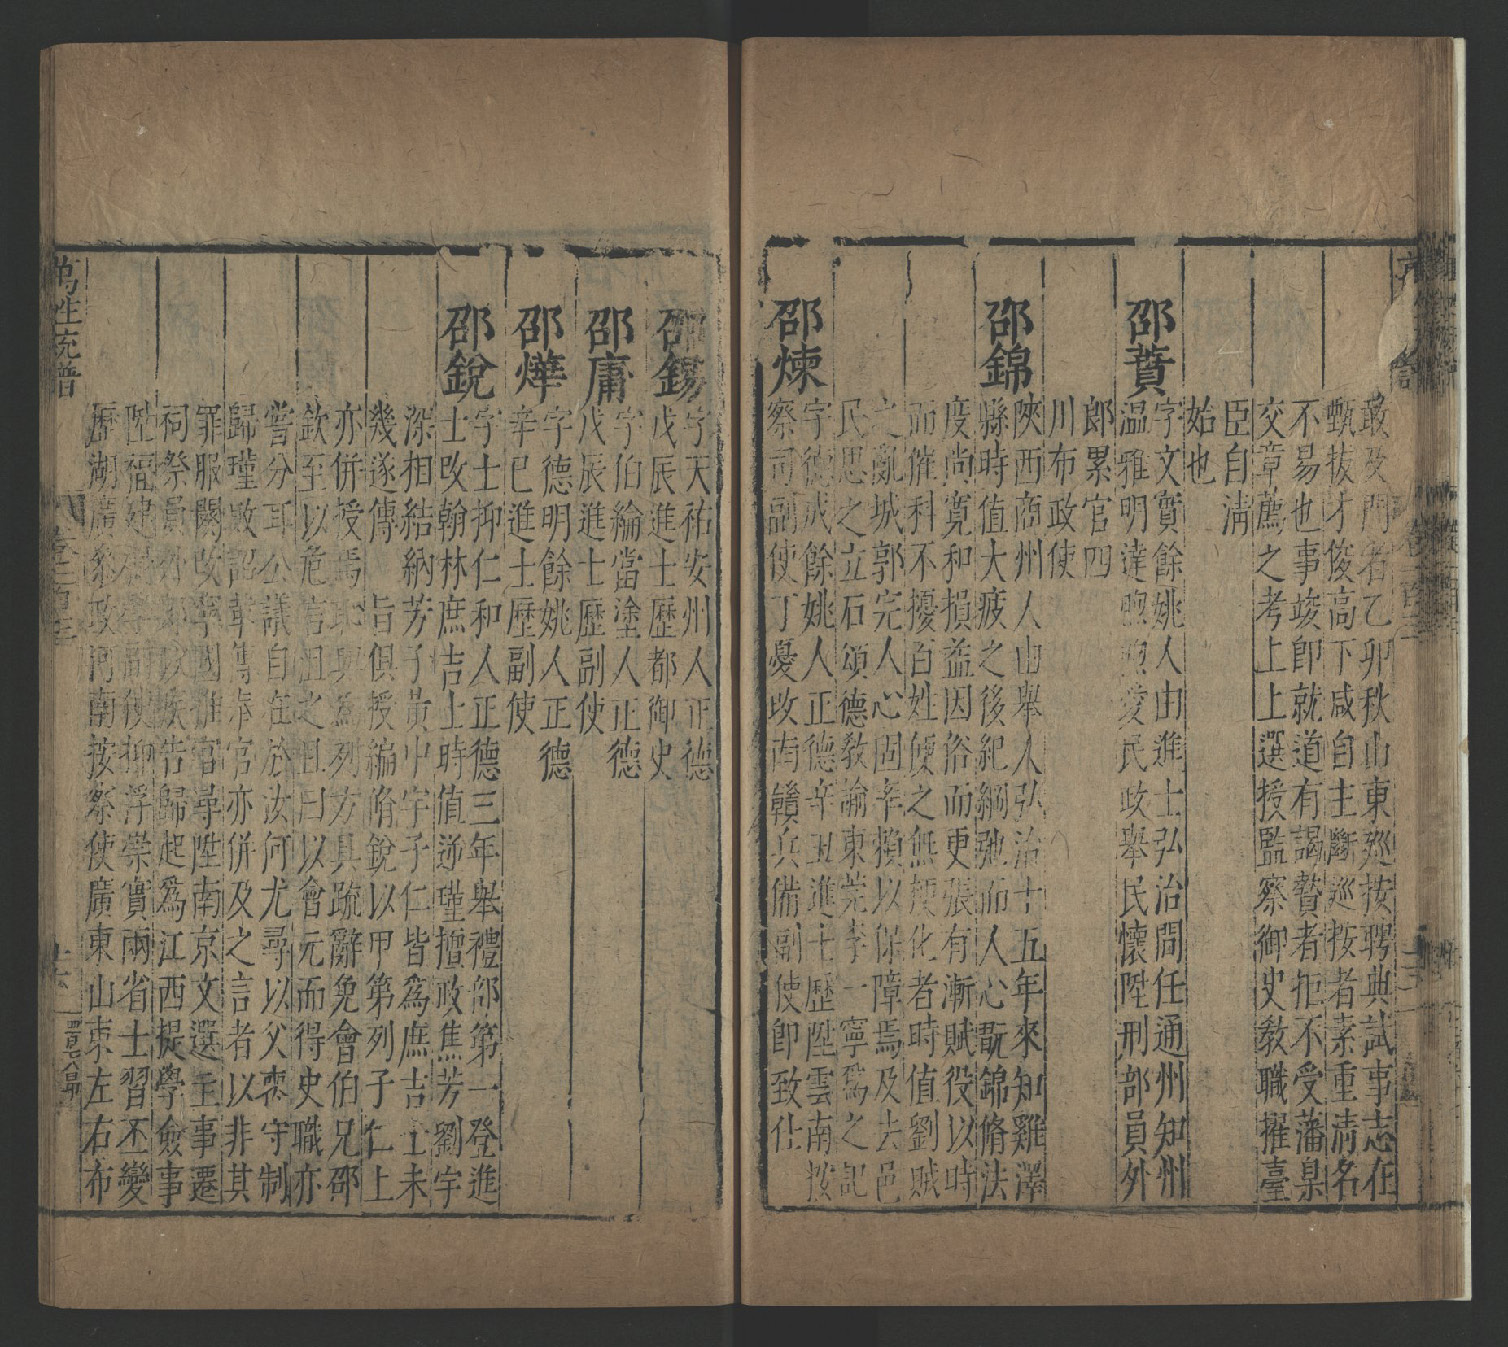 敢及門者乙卯秋山東廵按聘典試事志在
甄拔才俊高下咸自主斷廵按者素重清名
不易也事竣即就道有謁贄者拒不受藩臬
交章薦之考上上選授監察御史敎職擢臺
臣自清
始也
邵蕡
字文實餘姚人由進士弘治間任通州知州
温雅明達煦煦愛民政舉民懷陞刑部員外
郎累官四
川布政使
邵錦
陝西商州人由舉人弘治十五年來知雞澤
縣時值大疲之後紀綱弛而人心翫錦脩法
度尚寛和損益因俗而更張有漸賦役以時
而催科不擾百姓便之無梗化者時值劉賊
之亂城郭完人心固辛賴以保障焉及去邑
民思之立石頌德敎諭東莞李一寧爲之記
邵煉
字德成餘姚人正德辛丑進士歷陞雲南按
察司副使丁憂改南贛兵備副使即致仕
邵錫
字天祐安州人正德
戊辰進士歷都御史
邵庸
字伯綸當塗人正德
戊辰進士歷副使
邵燁
字德明餘姚人正德
辛巳進士歷副使
邵銳
字士抑仁和人正德三年舉禮部第一登進
士改翰林庶吉士時值逆瑾擅政焦芳劉宇
深相結納芳子黃中宇子仁皆爲庶吉士未
幾遂傳　旨俱授編脩銳以甲第列子仁上
亦併授焉恥與爲列方具疏辭免會伯兄邵
欽至以危言沮之且曰以會元而得史職亦
嘗分耳公議自在於汝何尤尋以父喪守制
歸瑾敗詔革傳奉官亦併及之言者以非其
罪服闋改寧國推官尋陞南京文選主事遷
祠祭員外郎以疾告歸起爲江西提學僉事
陞福建提學副使抑浮崇實兩省士習丕變
歷湖廣叅政河南按察使廣東山東左右布
萬姓統譜
卷一百三